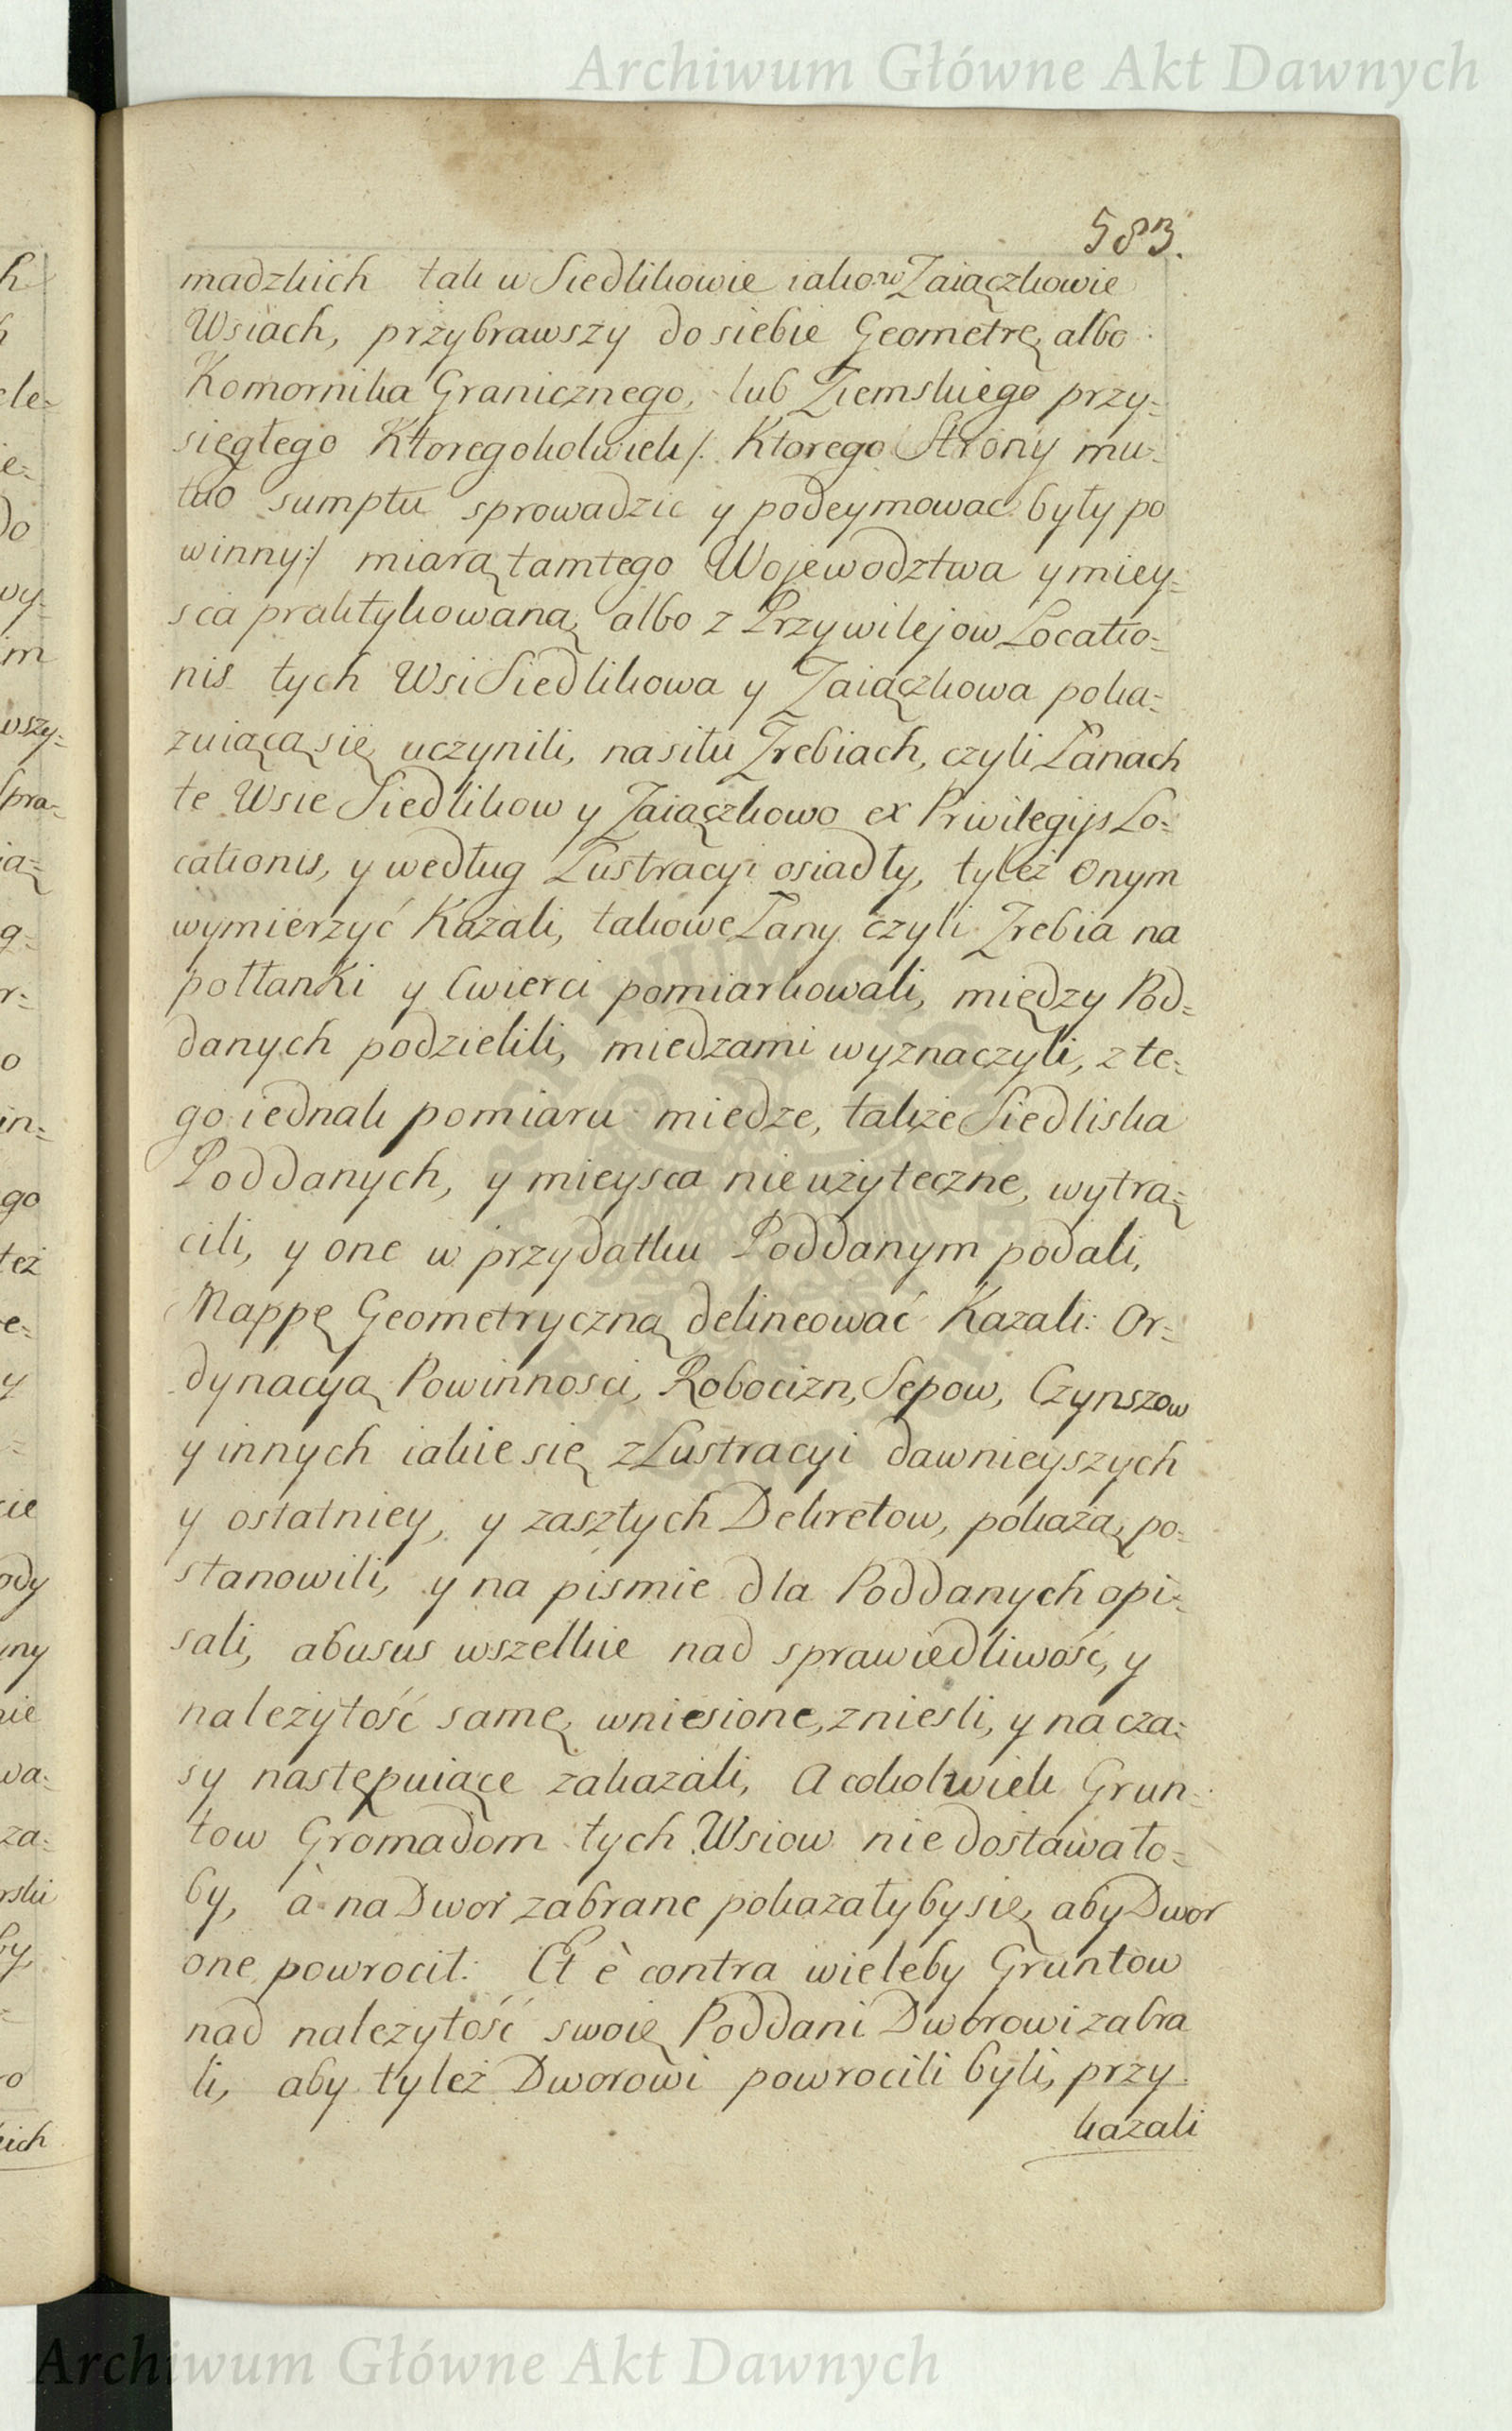 Archiwum Główne Akt Dawnych
583.
madzkich tak w Siedlikowie iako w Zaiączkowie
Wsiach, przybrawszy do siebie Geometrę albo
Komornika Granicznego, lub Ziemskiego przy=
sięgłego Ktoregokolwiek /: Ktorego Strony mu=
tuo sumptu sprowadzic y podeymowac były po
winny :/ miarą tamtego Wojewodztwa y miey=
sca praktykowaną albo z Przywilejow Locatio=
nis tych Wsi Siedlikowa y Zaiączkowa poka=
zuiącą się uczynili, na silu Zrebiach, czyli Łanach
te Wsie Siedlikow y Zaiączkowo ex Priwilegijs Lo=
cationis, y według Lustracyi osiadły, tyleż Onym
wymierzyć Kazali, takowe Łany czyli Zrebia na
połłanki y Cwierci pomiarkowali, między Pod=
danych podzielili, miedzami wyznaczyli, z te=
go iednak pomiaru miedze, także Siedliska
Poddanych, y mieysca nieużyteczne, wytrą=
cili, y one w przydatku Poddanym podali,
Mappę Geometryczną delineować Kazali: Or=
dynacyą Powinnosci, Robocizn, Sepow, Czynszow
y innych iakie się z Lustracyi dawnieyszych
y ostatniey, y zaszłych Dekretow, pokażą, po=
stanowili, y na pismie dla Poddanych opi=
sali, abusus wszelkie nad sprawiedliwość, y
należytość samę wniesione, zniesli, y na cza=
sy następuiące zakazali, A cokolwiek Grun=
tow Gromadom tych Wsiow niedostawało=
by, à na Dwor zabrane pokazałyby się, aby Dwor
one powrocił: Et è contra wieleby Gruntow
nad należytość swoię Poddani Dworowi zabra
li, aby tyleż Dworowi powrocili byli, przy
kazali
Archiwum Główne Akt Dawnych